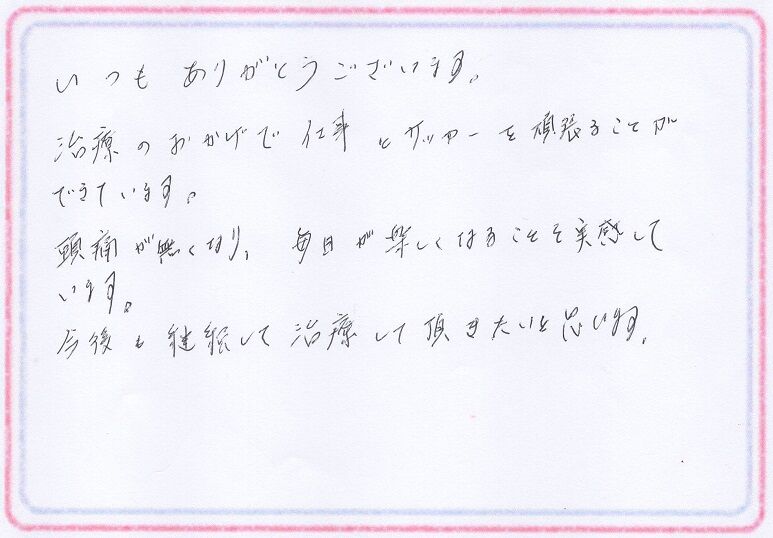 いつもありがとうございます。
治療のおかげで仕事とサッカーを頑張ることが
できています。
頭痛が無くなり、毎日が楽しくなることを実感して
います。
今後も継続して治療して頂きたいと思います。